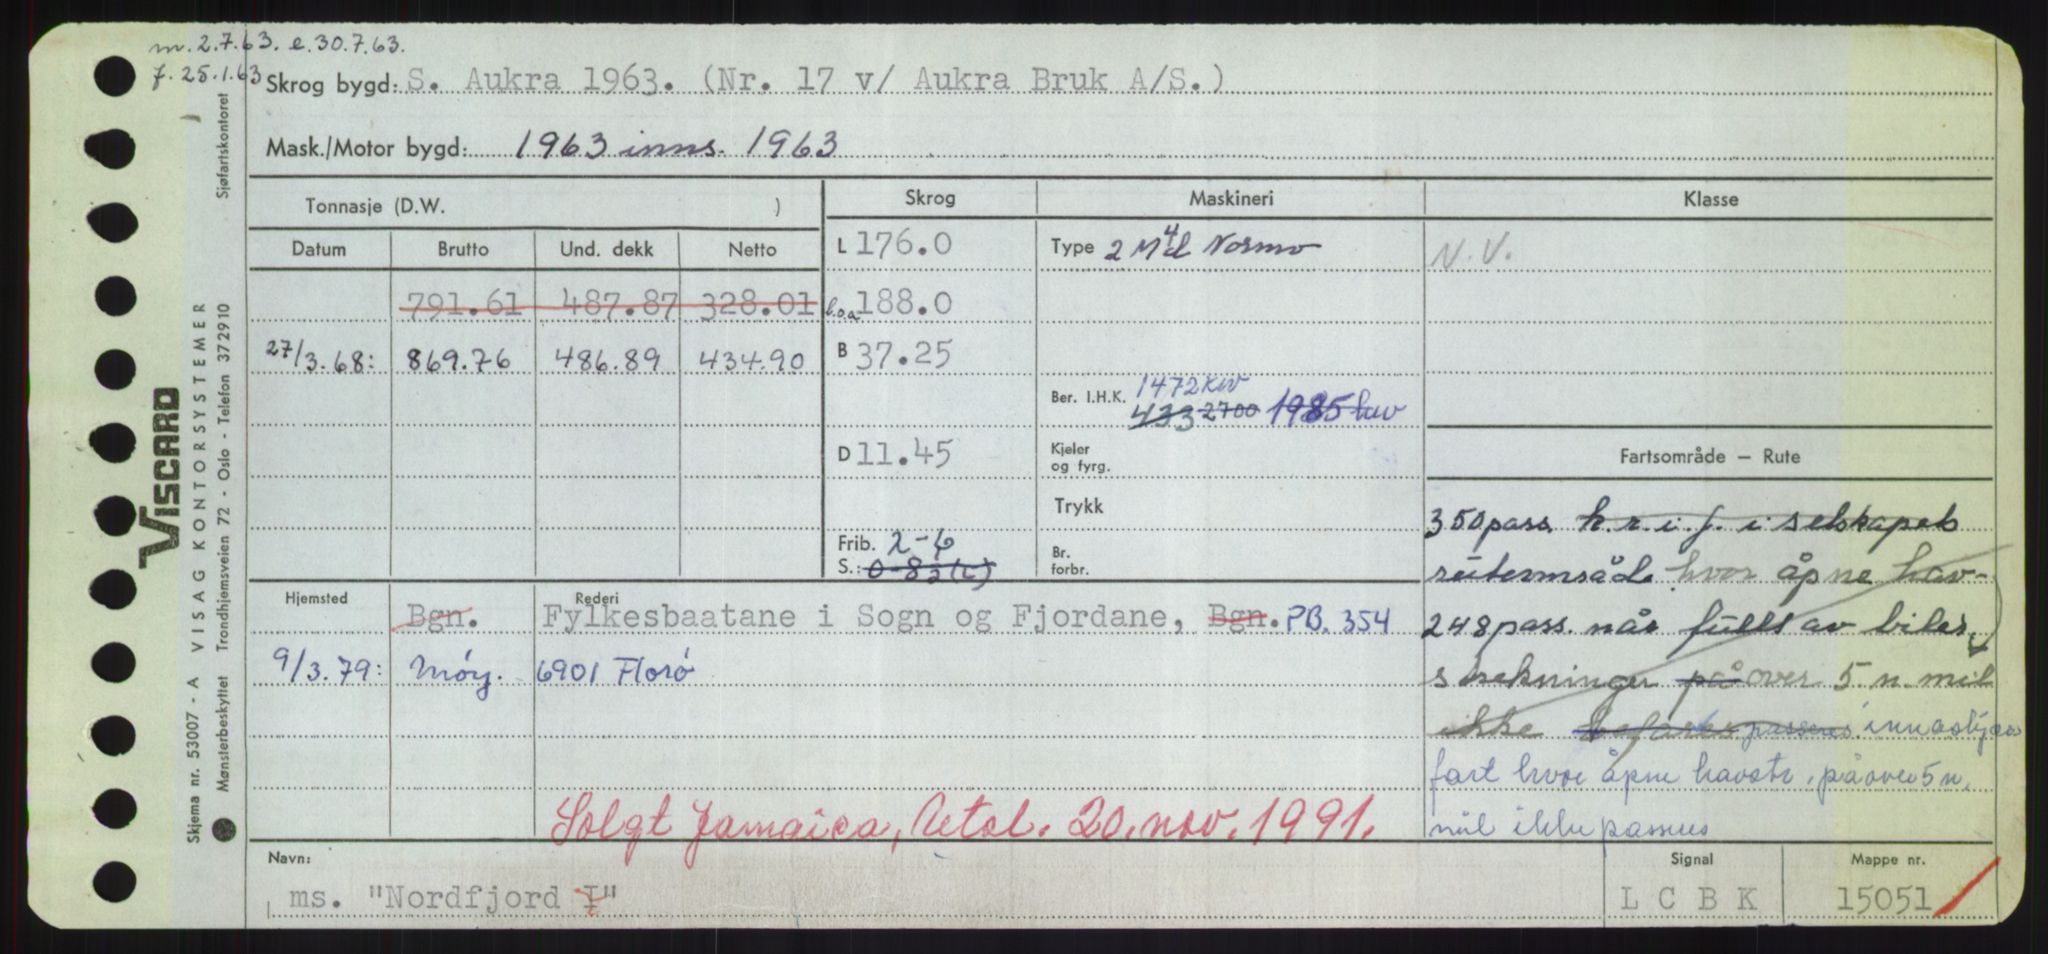 m. 2.7.63. e. 30.7.63.
f. 25.1.63
Skrog bygd: S. Aukra 1963. (Nr. 17 v/ Aukra Bruk A/S.)
Mask./Motor bygd: 1963 inns. 1963
Tonnasje (D.W. )
Skrog
Maskineri
Klasse
Datum Brutto Und. dekk Netto
L 176.0
Type 2 M 4 d Normo
N.V.
791.61 487.87 328.01
l.o.a 188.0
27/3.68: 869.76 486.89 434.90
B 37.25
Ber. I.H.K. 1472 kW
433 2700 1985 hav
D 11.45
Kjeler
og fyrg.
Trykk
Frib. 2-6
S.: 0-8½(L)
Br.
forbr.
Fartsområde — Rute
350 pass. k.r.i.f. i selskapets
ruteområde hvor åpne hav-
248 pass. når fullt av biler
strekninger på over 5 n. mil
ikke befares passeres innaskjærs
fart hvor åpne havstr. på over 5 n.
mil ikke passeres
Hjemsted
Rederi
Bgn. Fylkesbaatane i Sogn og Fjordane, Bgn. PB. 354
9/3.79: Måøy. 6901 Florø
Solgt Jamaica, 20. nov. 1991.
Navn:
ms. "Nordfjord I"
Signal
L C B K
Mappe nr.
15051
Sjøfartskontoret
VISCARD
Skjema nr. 53007 - A VISAG KONTORSYSTEMER
Mønsterbeskyttet Trondhjemsveien 72 - Oslo - Telefon 372910